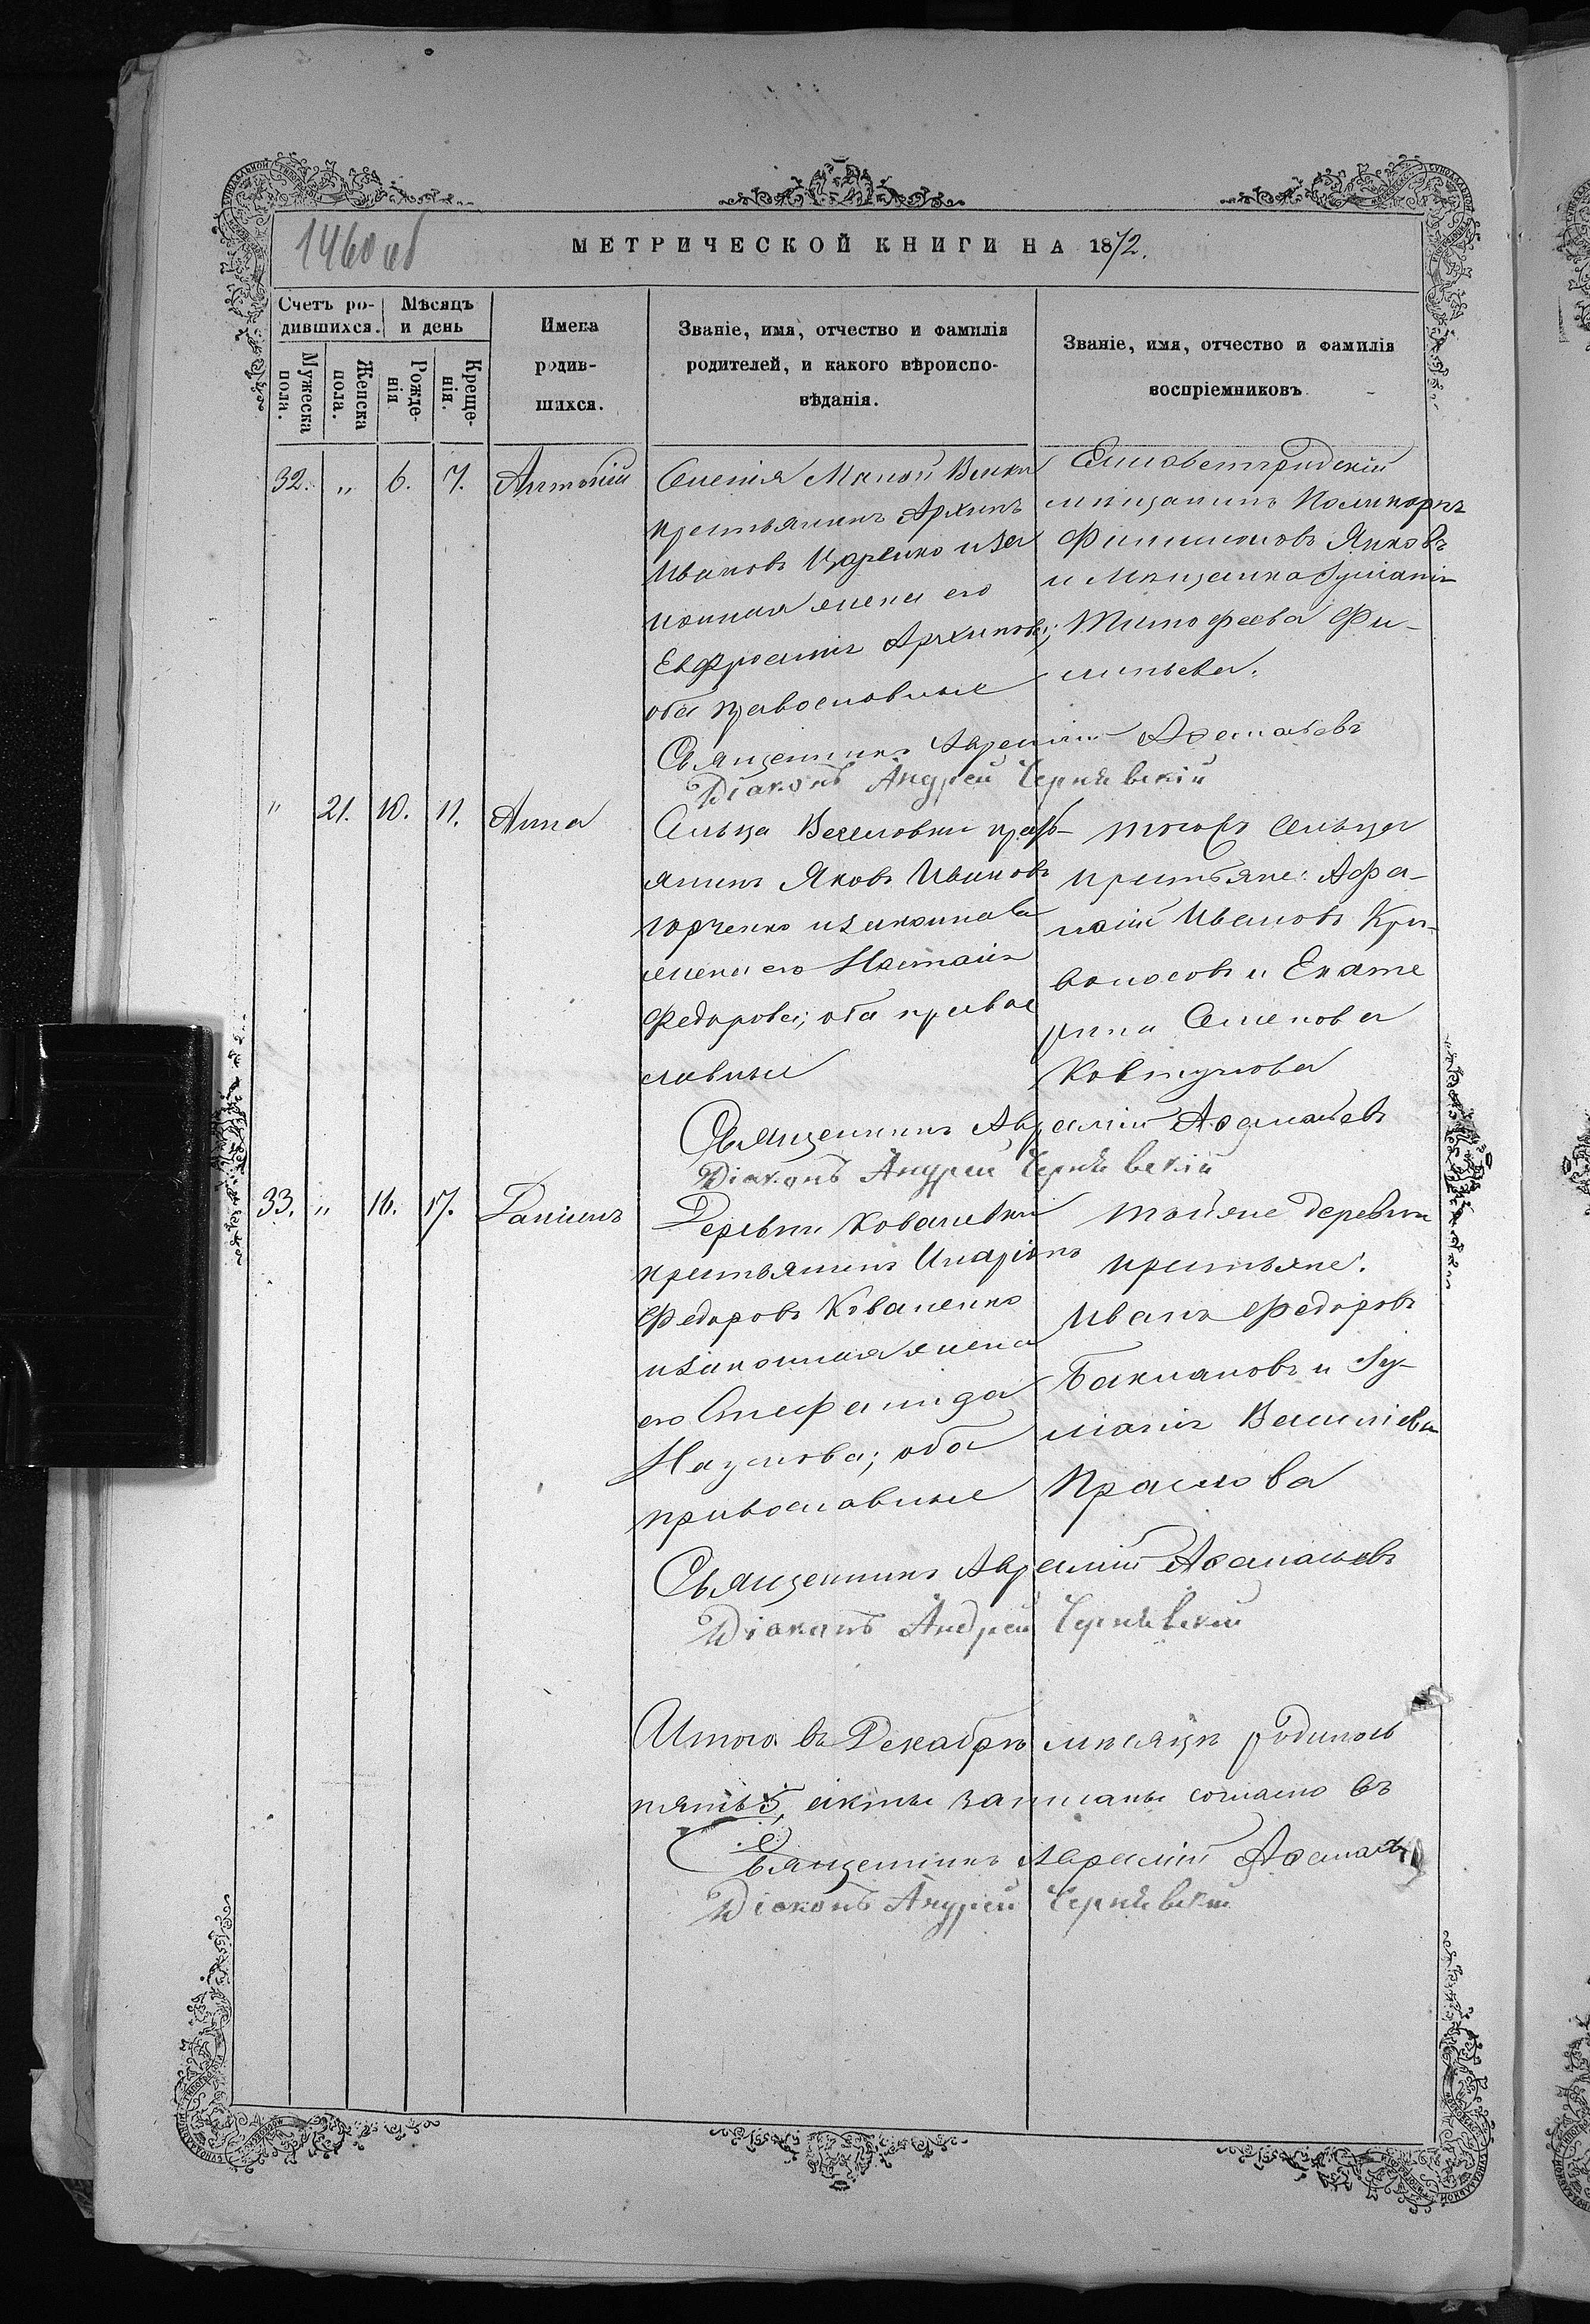 1460 об
МЕТРИЧЕСКОЙ КНИГИ НА 1872.
Счетъ ро-
дившихся.
Мѣсяцъ
и день
Мужеска
пола.
Женска
пола.
Рожде-
нія
Креще-
нія.
Имена
родив-
шихся.
Званіе, имя, отчество и фамилія
родителей, и какого вѣроиспо-
вѣданія.
Званіе, имя, отчество и фамилія
воспріемниковъ
32. „ 6. 7. Антоній
Селенія Малой Виски
крестьянинъ Архипъ
Ивановъ Царенко и за
конная жена его
Евфросинія Архипова;
оба православные
Елисаветградскій
мѣщанинъ Поликарпъ
Филимоновъ Янковъ
и Мѣщанка Іуліанія
Тимофеева Фи-
липьева.
Священникъ Аврамій Аѳанасьевъ
Діаконъ Андрей Чернявскій
„ 21. 10. 11. Анна
Сельца крест-
янинъ Яковъ Ивановъ
Юрченко и законная
жена его Настасія
Федорова; оба правос
лавные
тогожъ сельца
крестьяне: Афа-
насій Ивановъ Кри-
волосовъ и Екате
рина Семенова
Ковтунова
Священникъ Аврамій Аѳанасьевъ
Діаконъ Андрей Чернявскій
33. „ 16. 17. Даніилъ
Деревни Ковалевки
крестьянинъ Иларіонъ
Федоровъ Коваленко
изаконная жена
его Стефанида
Наумова; оба
православные
тойже деревни
крестьяне:
Иванъ Федоровъ
Баклановъ и Іу-
ліанія Василіева
Краснова
Священникъ Аврамій Аѳанасьевъ
Діаконъ Андрей Чернявскій
Итого въ Декабрѣ мѣсяцѣ родилось
пять 5, акты записаны согласно съ
Священникъ Аврамій Аѳанась
Діаконъ Андрей Чернявскій